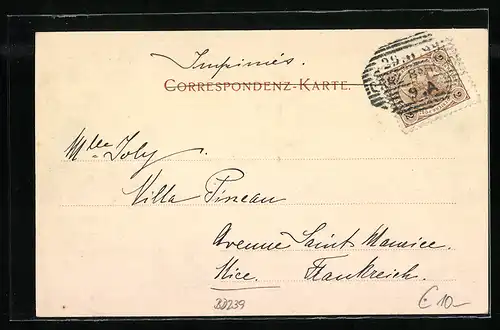 Imprimés.
CORRESPONDENZ-KARTE.
Mlle Joly.
Villa Pineau
Avenue Saint Maurice.
Nice. Frankreich.
BD239
€ 10-